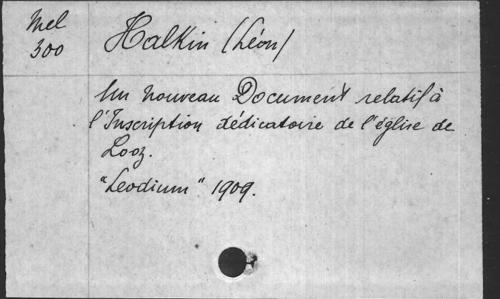 Mel
300
Halkin (Léon)
Un nouveau Document relatif à
l'Inscription dédicatoire de l'église de
Looz.
"Leodium" 1909.